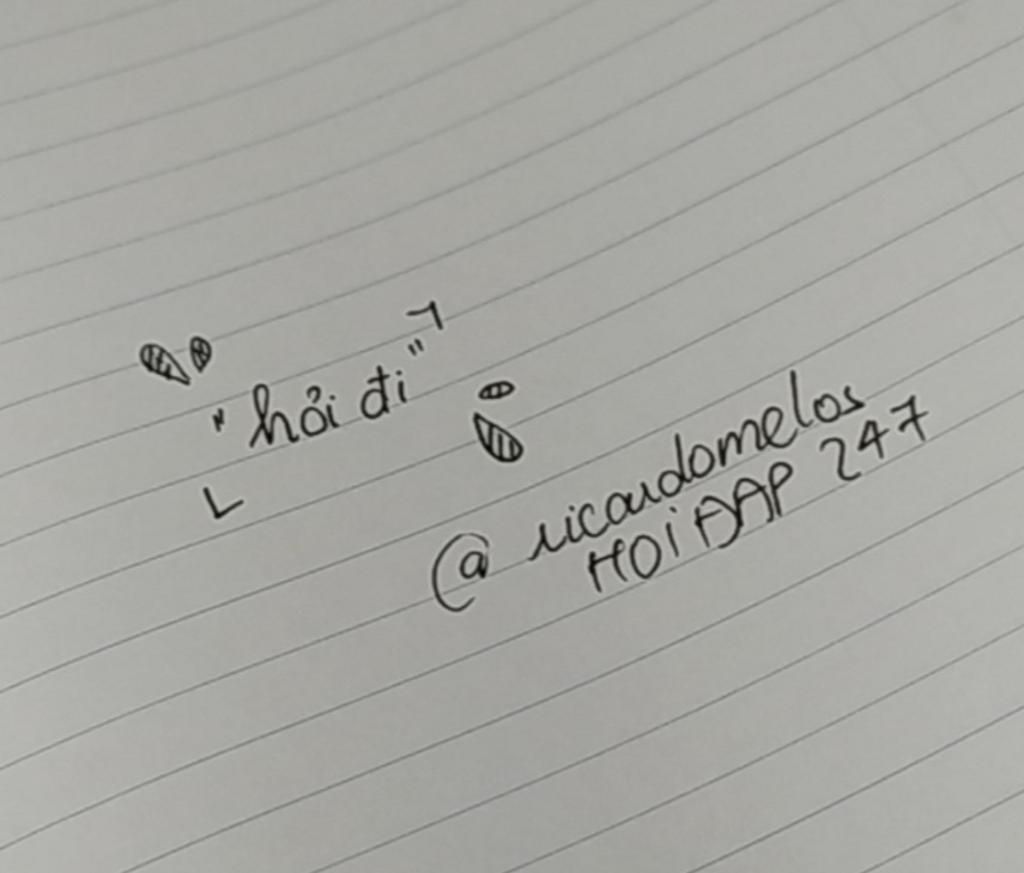 "hỏi đi"
@ ricardomelos
HOIĐAP 247